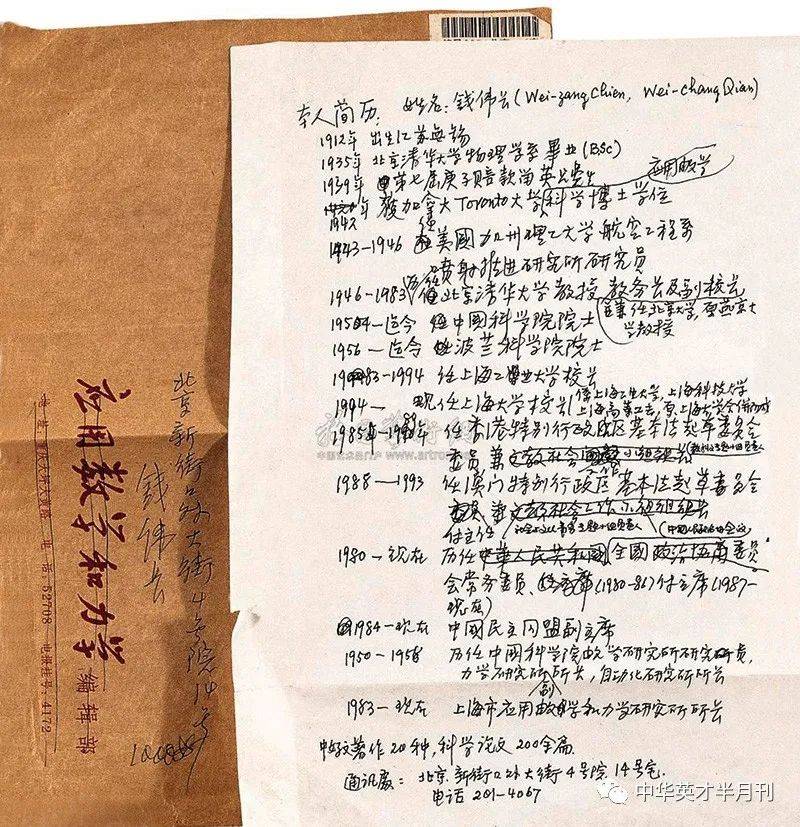 本人简历： 姓名：钱伟长(Wei-zang Chien, Wei-chang Qian)
1912年 出生江苏无锡
1935年 北京清华大学物理学系毕业(BSc)
1939年 第七届庚子赔款留英公费生
应用数学
1942年 获加拿大Toronto大学科学博士学位
1943-1946 任美國加州理工大学航空工程系
喷射推进研究所研究员
1946-1983 历任北京清华大学教授 教务长及副校长
兼任北京大学,燕京大
学教授
1954-迄今 任中国科学院院士
1956-迄今 任波兰科学院院士
1983-1994 任上海工业大学校长
1994- 现任上海大学校长
1985- 任香港特别行政区基本法起草委员会
委员
1988-1993 任澳门特别行政区基本法起草委员会
付主任
1980-现在 历任全国政治协商委员
会常务委员、付主席(1987-
现在)
1984-现在 中国民主同盟副主席
1950-1958 历任中国科学院数学研究所研究员,
力学研究所副所长,自动化研究所所长
1983-现在 上海市应用数学和力学研究所所长
著作20种,科学论文200余篇
通讯处： 北京新街口外大街4号院14号宅
电话 201-4067
应用数学和力学 编辑部
电话：52708 电报挂号：4172
北京新街口外大街4号院14号
钱伟长
中华英才半月刊